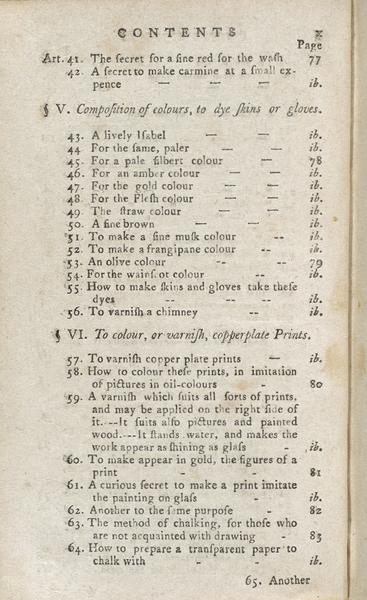 CONTENTS x
Page
Art. 41. The ſecret for a fine red for the waſh 77
42. A ſecret to make carmine at a ſmall ex-
pence — — — ib.
§ V. Compoſition of colours, to dye ſkins or gloves.
43. A lively Iſabel — — ib.
44 For the ſame, paler — — ib.
45. For a pale filbert colour — 78
46. For an amber colour — — ib.
47. For the gold colour — — ib.
48. For the Fleſh colour — — ib.
49. The ſtraw colour — — ib.
50. A fine brown — — ib.
51. To make a fine muſk colour -- ib.
52. To make a frangipane colour -- ib.
53. An olive colour -- -- 79
54. For the wainſcot colour -- ib.
55. How to make ſkins and gloves take theſe
dyes -- -- -- ib.
56. To varniſh a chimney -- ib.
§ VI. To colour, or varniſh, copperplate Prints.
57. To varniſh copper plate prints — ib.
58. How to colour theſe prints, in imitation
of pictures in oil-colours - 80
59. A varniſh which ſuits all ſorts of prints,
and may be applied on the right ſide of
it.--It ſuits alſo pictures and painted
wood.--It ſtands water, and makes the
work appear as ſhining as glaſs - ib.
60. To make appear in gold, the figures of a
print - - - 81
61. A curious ſecret to make a print imitate
the painting on glaſs - ib.
62. Another to the ſame purpoſe - 82
63. The method of chalking, for thoſe who
are not acquainted with drawing - 83
64. How to prepare a tranſparent paper to
chalk with - - ib.
65. Another